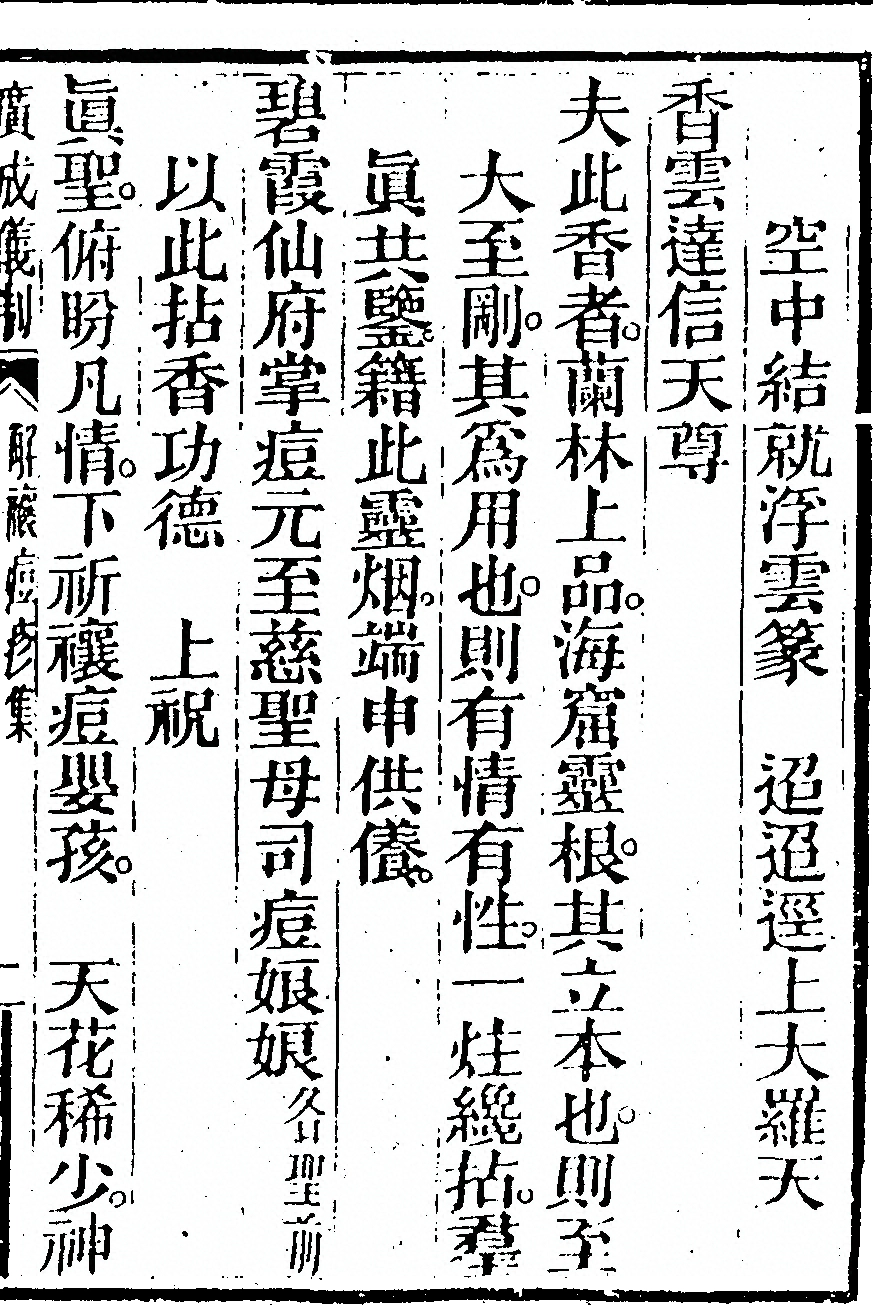 空中結就浮雲篆　迢迢逕上大羅天
香雲達信天尊
夫此香者。蘭林上品。海窟靈根。其立本也。則至
大至剛。其爲用也。則有情有性。一炷纔拈。羣
眞共鑒。籍此靈烟。端申供養。
碧霞仙府掌痘元至慈聖母司痘娘娘各聖前
以此拈香功德　上祝
眞聖。俯盼凡情。下祈禳痘嬰孩。　天花稀少。神
廣成儀制　解禳痘疹集　二